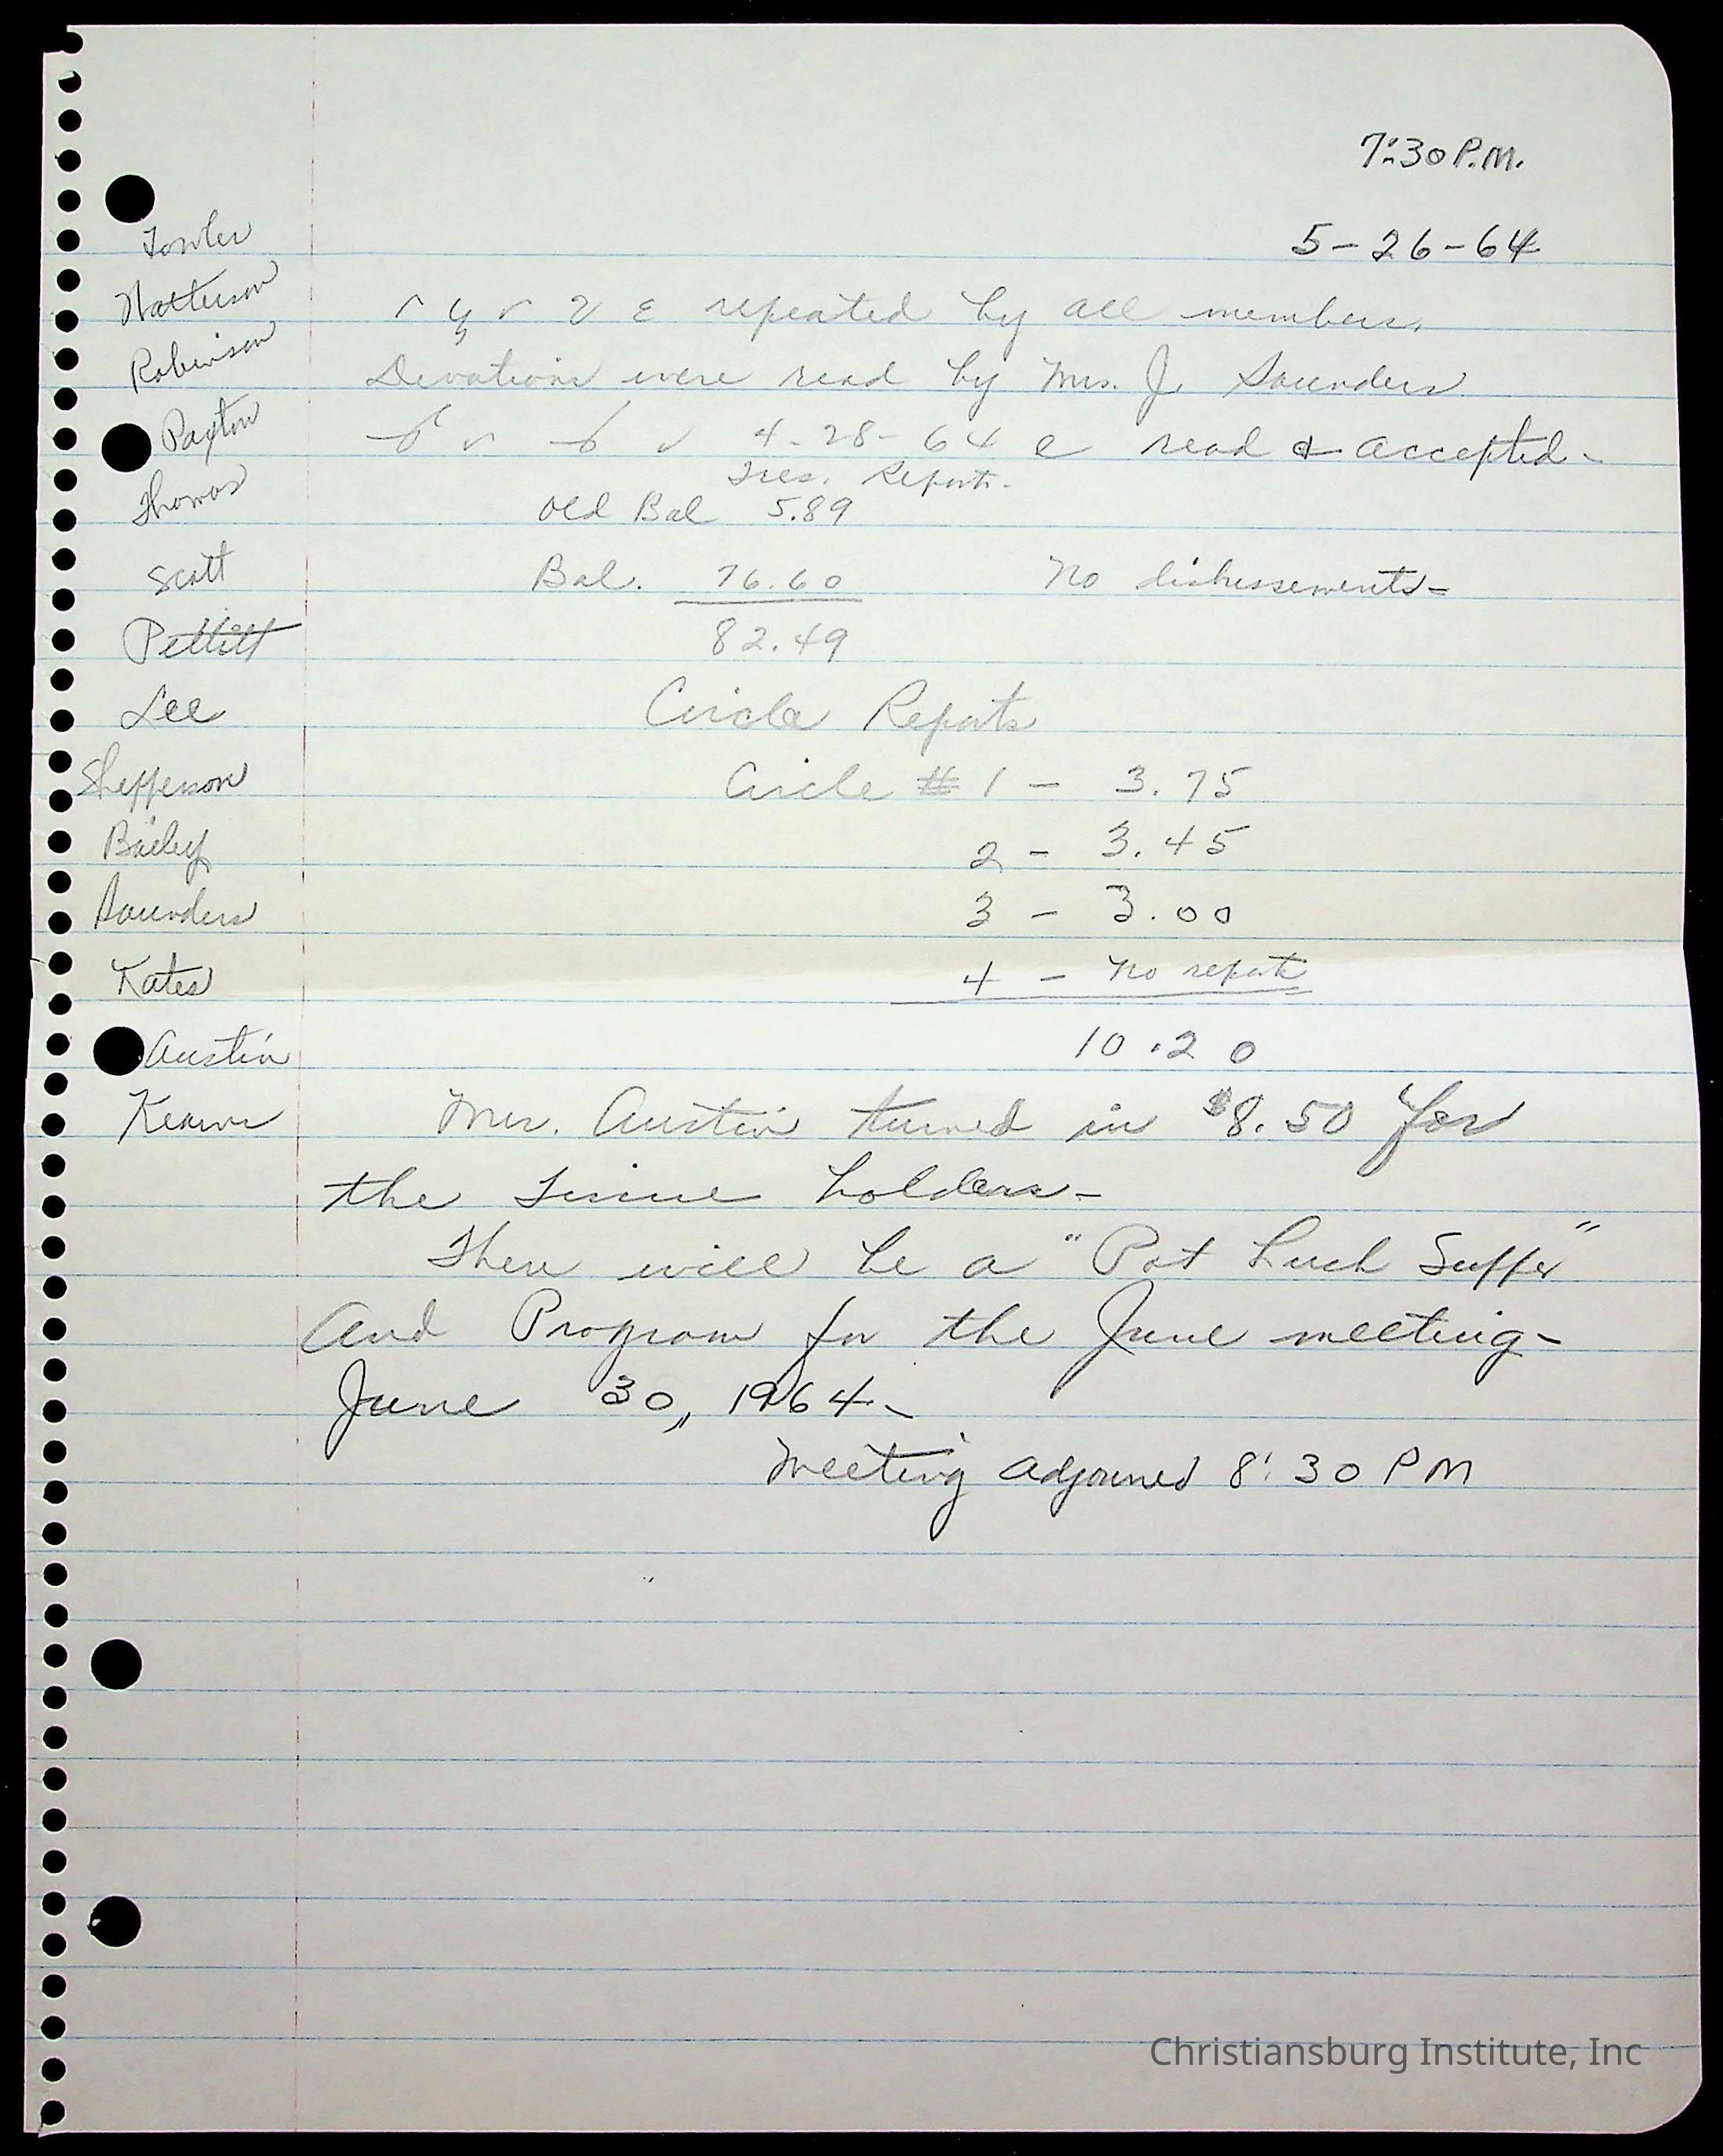 7:30 P.M.
5-26-64
Towler
Patterson
Robinson
Paxton
Thomas
Scott
Pettitt
Lee
Shepperson
Bailey
Saunders
Kates
Austin
repeated by all members.
Devotions were read by Mrs. J. Saunders
4-28-64 read & accepted-
Tres. Report-
Old Bal 5.89
Bal. 76.60 No disbussements-
82.49
Circle Reports
Circle # 1 - 3.75
2 - 3.45
3 - 3.00
4 - No report
10.20
Mrs. Austin turned in $8.50 for
the holders-
There will be a "Pot Luck Supper"
And Program for the June meeting-
June 30, 1964-
Meeting adjourned 8:30 PM
Christiansburg Institute, Inc